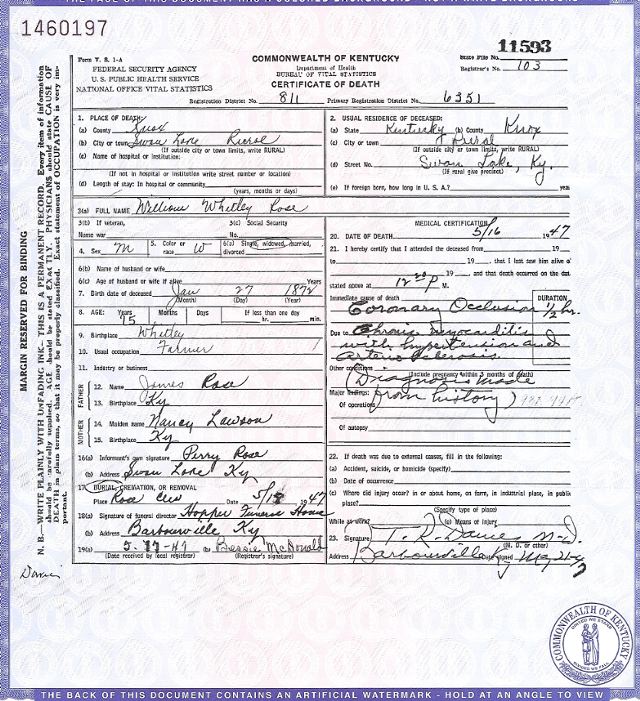 1460197
11593
Form V. S. 1-A
FEDERAL SECURITY AGENCY
U. S. PUBLIC HEALTH SERVICE
NATIONAL OFFICE VITAL STATISTICS
COMMONWEALTH OF KENTUCKY
Department of Health
BUREAU OF VITAL STATISTICS
CERTIFICATE OF DEATH
State File No.
Registrar's No. 103
Registration District No. 811 Primary Registration District No. 6351
MARGIN RESERVED FOR BINDING
N. B.—WRITE PLAINLY WITH UNFADING INK—THIS IS A PERMANENT RECORD. Every item of information
should be carefully supplied. AGE should be stated EXACTLY. PHYSICIANS should state CAUSE OF
DEATH in plain terms, so that it may be properly classified. Exact statement of OCCUPATION is very im-
portant.
1. PLACE OF DEATH
(a) County Knox
(b) City or town Swan Lake Rural
(If outside city or town limits, write RURAL)
(c) Name of hospital or institution:
(If not in hospital or institution write street number or location)
(d) Length of stay: In hospital or community
(years, months or days)
2. USUAL RESIDENCE OF DECEASED:
(a) State Kentucky (b) County Knox
(c) City or town Rural
(If outside city or town limits, write RURAL)
(d) Street No. Swan Lake, Ky.
(If rural give precinct)
(e) If foreign born, how long in U. S. A.? years
3(a) FULL NAME William Whitley Rose
3(b) If veteran,
Name war
3(c) Social Security
No.
4. Sex M
5. Color or
race W
6(a) Single, widowed, married,
divorced
6(b) Name of husband or wife
6(c) Age of husband or wife if alive Years
7. Birth date of deceased Jan 27 1872
(Month) (Day) (Year)
8. AGE: Years Months Days If less than one day
75 hr. min.
9. Birthplace Whitley
10. Usual occupation Farmer
11. Industry or business
FATHER
12. Name James Rose
13. Birthplace Ky
MOTHER
14. Maiden name Nancy Lawson
15. Birthplace Ky
16(a) Informant's own signature Perry Rose
(b) Address Swan Lake Ky
17. BURIAL, CREMATION, OR REMOVAL
Place Rose Cem Date 5/18 1947
18(a) Signature of funeral director Hopper Funeral Home
(b) Address Barbourville Ky
19(a) 5-17-47 (b) Bessie McDonald
(Date received by local registrar) (Registrar's signature)
MEDICAL CERTIFICATION
20. DATE OF DEATH 5/16 1947
21. I hereby certify that I attended the deceased from 19
to 19 , that I last saw him alive o
19 , and that death occurred on the dat
stated above at P m.
Immediate cause of death
DURATION
Coronary Occlusion 1/2 hr.
Due to Chronic myocarditis
with hypertension and
Arterio Sclerosis
Other conditions
(Include pregnancy within 3 months of death)
(Diagnosis made
from history)
Major findings:
Of operations
Of autopsy
22. If death was due to external causes, fill in the following:
(a) Accident, suicide, or homicide (specify)
(b) Date of occurrence
(c) Where did injury occur? in or about home, on farm, in industrial place, in publi
place?
(Specify type of place)
While at work? (e) Means of injury
23. Signature T. R. Davies M.D.
(M. D. or other)
Address Barbourville Ky signed
Davies
COMMONWEALTH OF KENTUCKY
THE BACK OF THIS DOCUMENT CONTAINS AN ARTIFICIAL WATERMARK - HOLD AT AN ANGLE TO VIEW